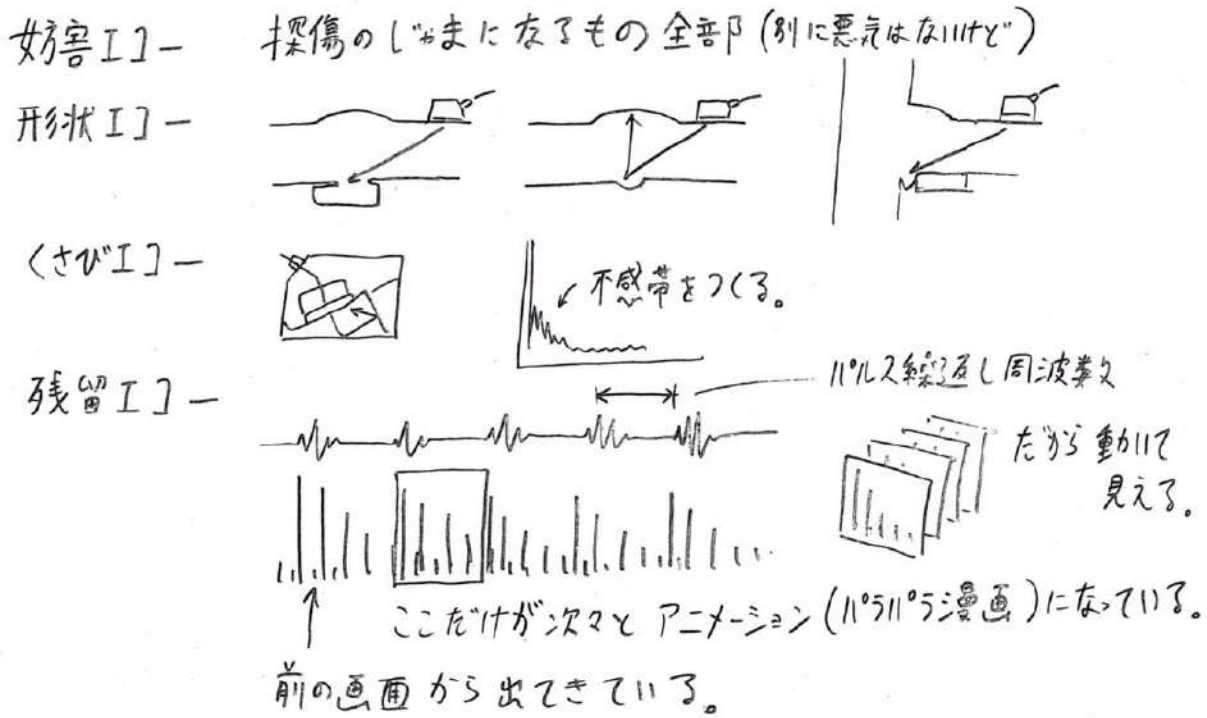 妨害エコー 探傷のじゃまになるもの全部(別に悪気はないけど)
形状エコー
くさびエコー
不感帯をつくる。
残留エコー
パルス繰返し周波数
だから動いて
見える。
ここだけが次々とアニメーション(パラパラ漫画)になっている。
前の画面から出てきている。